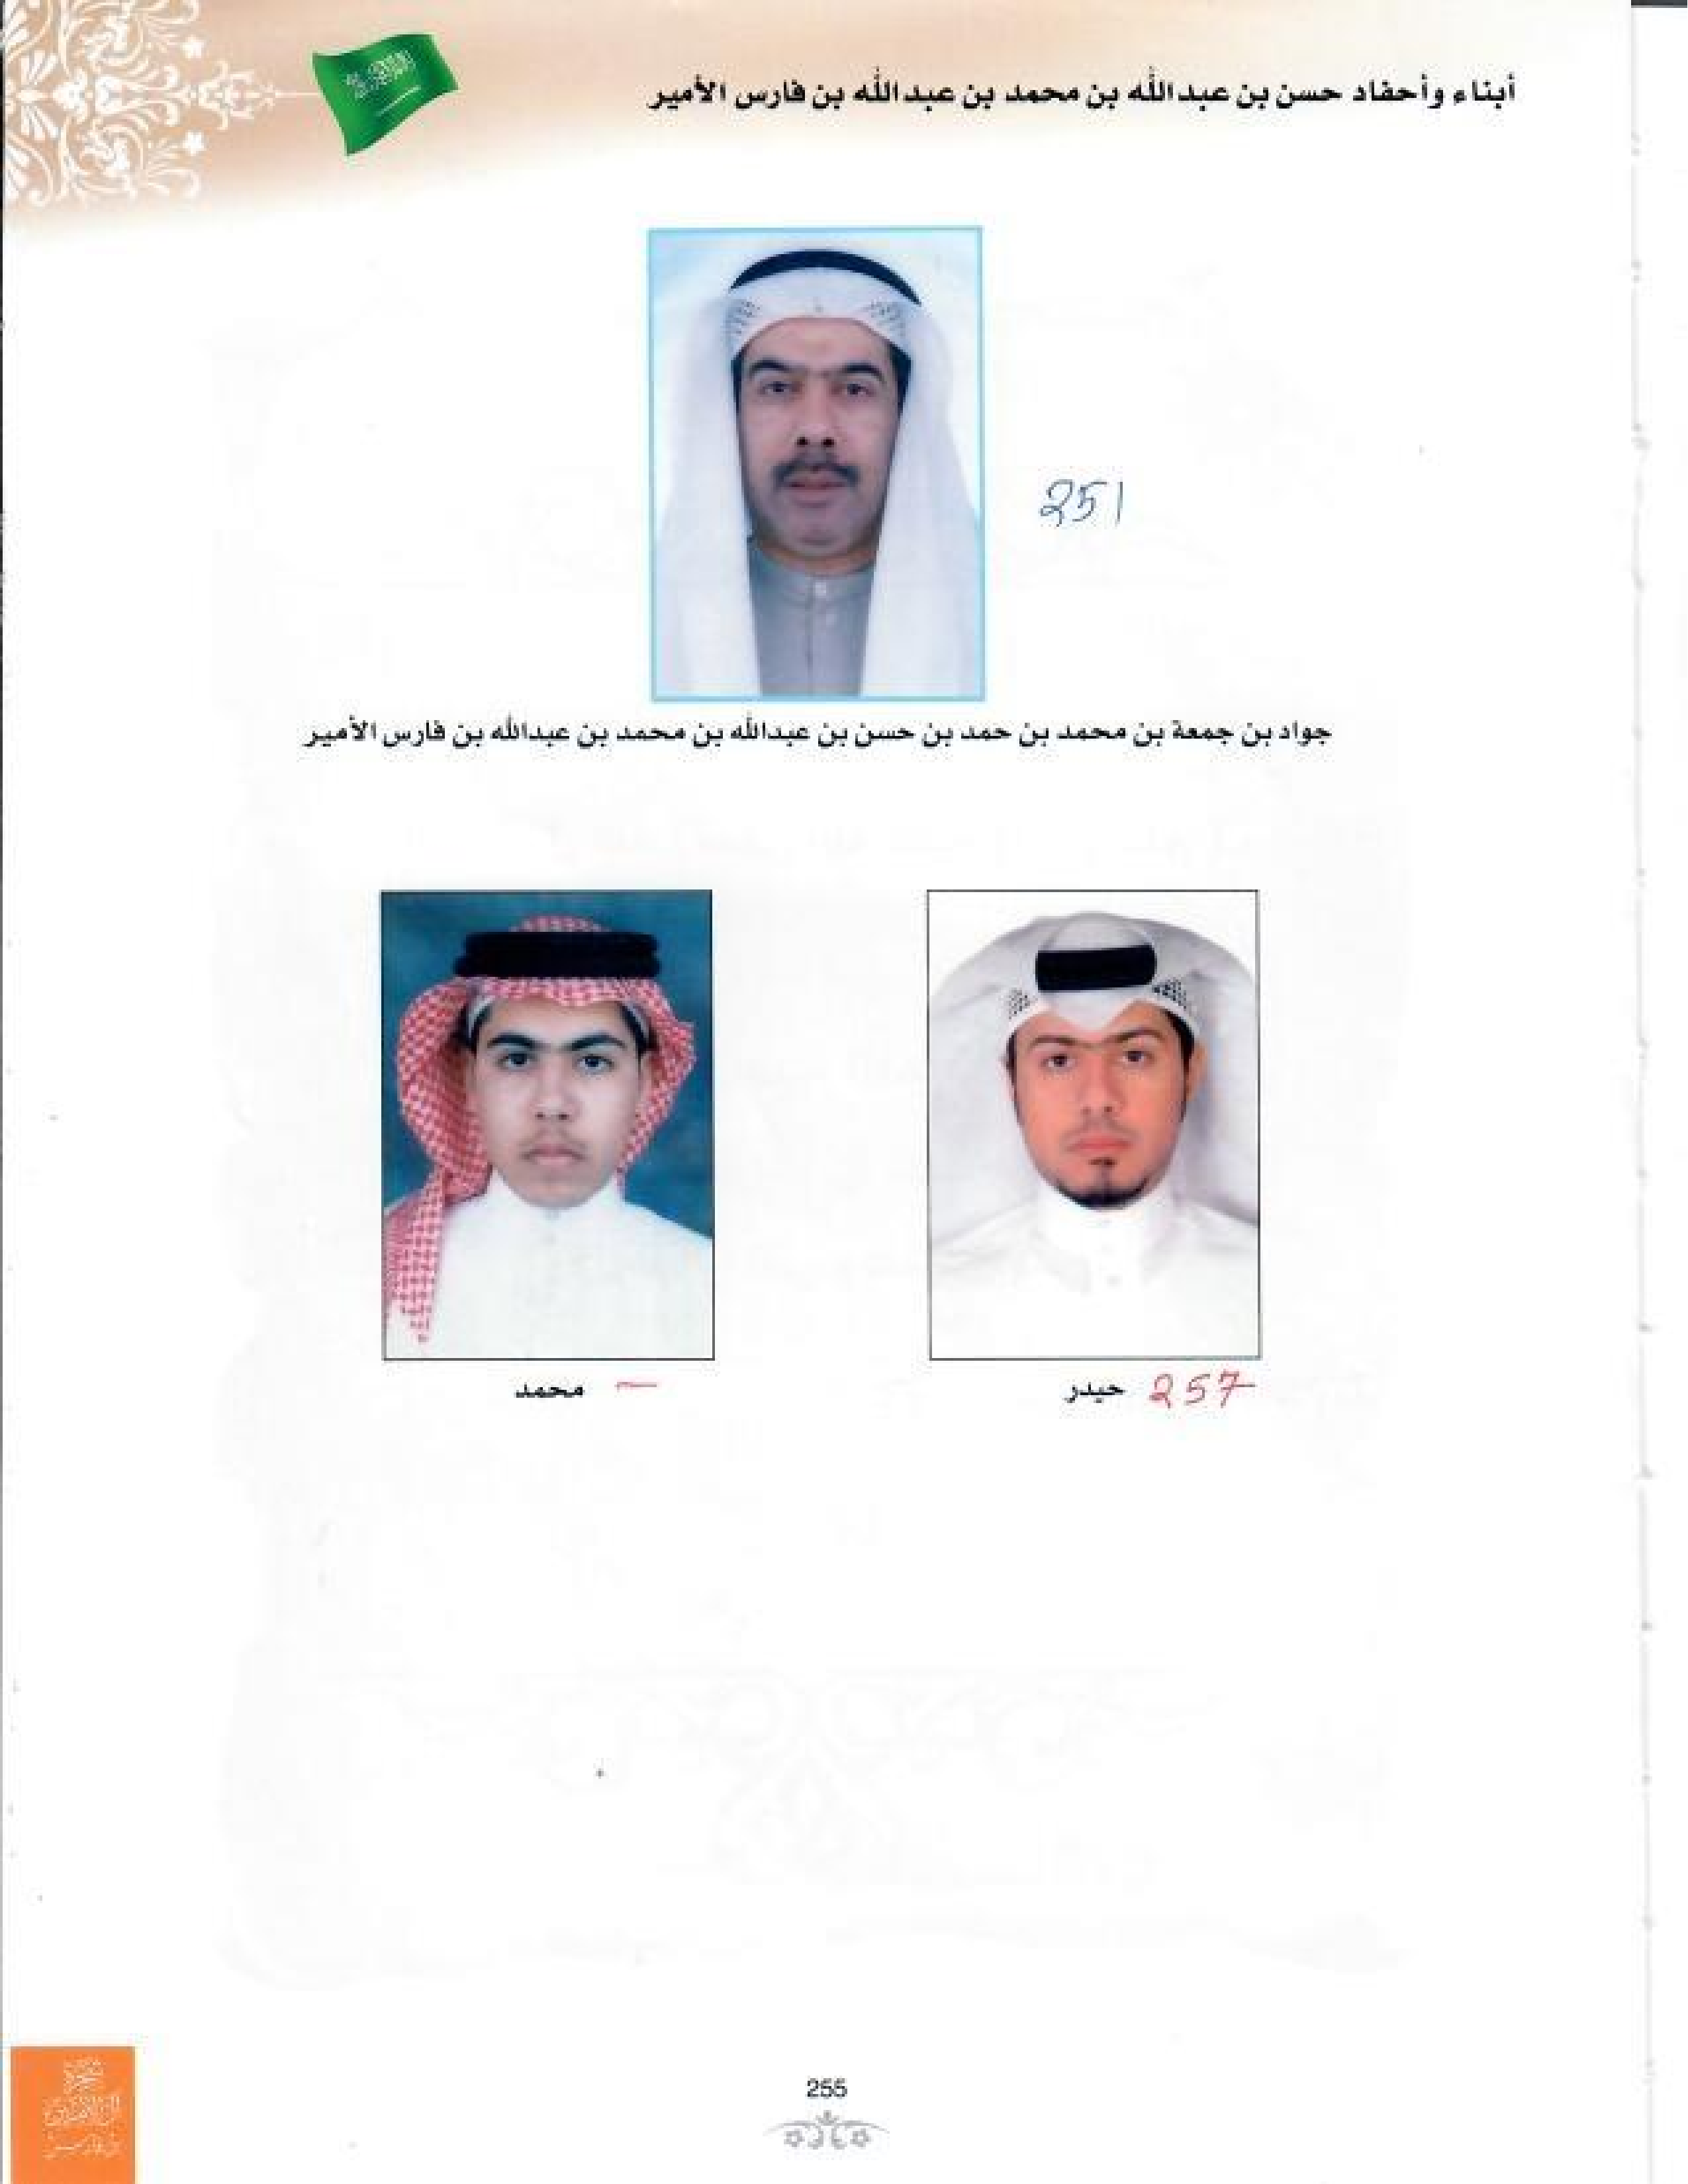 أبناء وأحفاد حسن بن عبدالله بن محمد بن عبدالله بن فارس الأمير
251
جواد بن جمعة بن محمد بن حمد بن حسن بن عبدالله بن محمد بن عبدالله بن فارس الأمير
حيدر 257
محمد
255